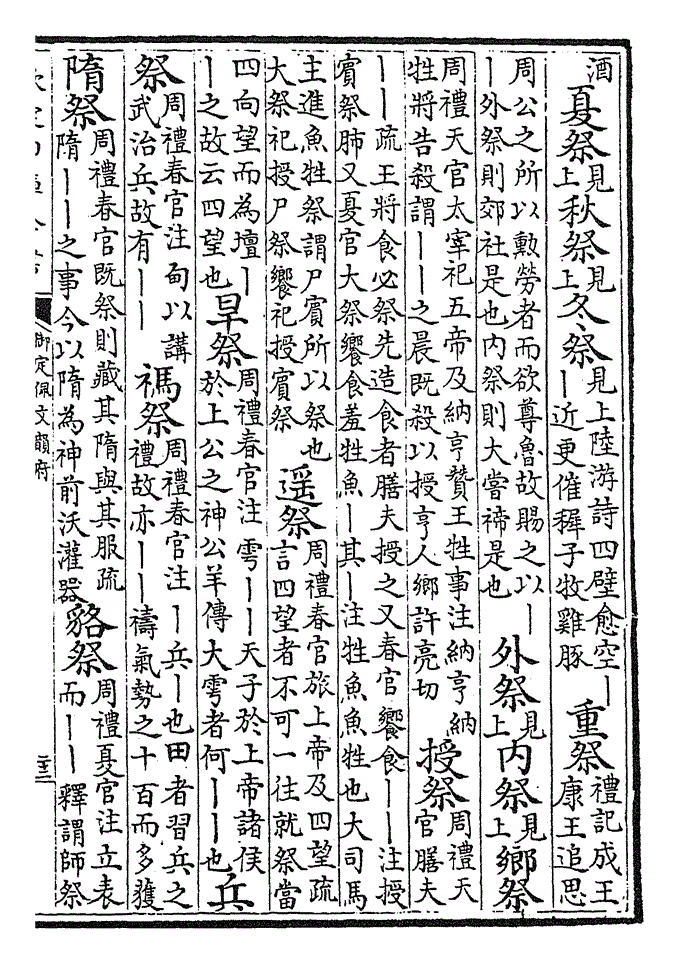 酒夏祭見上秋祭見上冬祭見上陸游詩四壁愈空丨丨近更催穉子牧雞豚重祭禮記成王康王追思
周公之所以勳勞者而欲尊魯故賜之以丨丨外祭則郊社是也内祭則大嘗禘是也外祭見上内祭見上鄉祭
周禮天官太宰祀五帝及納亨贊王牲事注納亨納牲將告殺謂丨丨之晨既殺以授亨人鄉許亮切授祭周禮天官膳夫
丨丨疏王將食必祭先造食者膳夫授之又春官饗食丨丨注授賓祭肺又夏官大祭饗食羞牲魚丨其丨注牲魚魚牲也大司馬
主進魚牲祭謂尸賓所以祭也大祭祀授尸祭饗祀授賓祭遥祭周禮春官旅上帝及四望疏言四望者不可一往就祭當
四向望而為壇丨丨之故云四望也旱祭周禮春官注雩丨丨天子於上帝諸侯於上公之神公羊傳大雩者何丨丨也兵
祭周禮春官注甸以講武治兵故有丨丨禡祭周禮春官注丨兵丨也田者習兵之禮故亦丨丨禱氣勢之十百而多獲
隋祭周禮春官既祭則藏其隋與其服疏隋丨丨之事今以隋為神前沃灌器貉祭周禮夏官注立表而丨丨釋謂師祭
御定佩文韻府